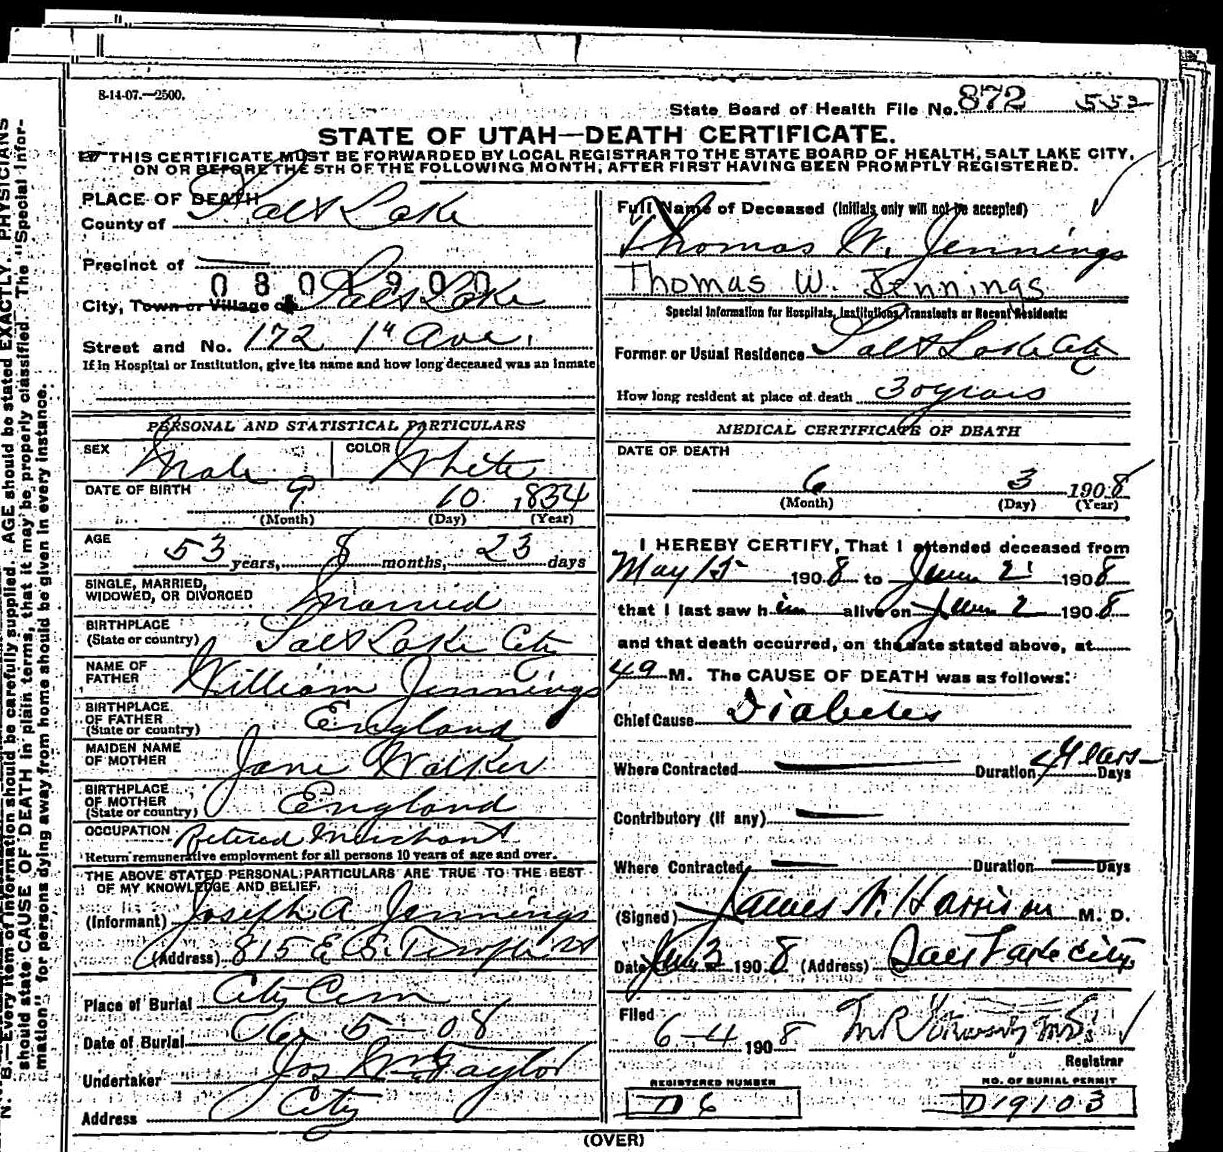 8-14-07.—2500.
State Board of Health File No. 872 552
STATE OF UTAH—DEATH CERTIFICATE.
THIS CERTIFICATE MUST BE FORWARDED BY LOCAL REGISTRAR TO THE STATE BOARD OF HEALTH, SALT LAKE CITY,
ON OR BEFORE THE 5TH OF THE FOLLOWING MONTH, AFTER FIRST HAVING BEEN PROMPTLY REGISTERED.
PLACE OF DEATH
County of Salt Lake
Precinct of
0801900
City, Town or Village of Salt Lake
Street and No. 172 1st Ave.
If in Hospital or Institution, give its name and how long deceased was an inmate
PERSONAL AND STATISTICAL PARTICULARS
SEX Male COLOR White
DATE OF BIRTH 9 10 1834
(Month) (Day) (Year)
AGE 53 years, 8 months, 23 days
SINGLE, MARRIED,
WIDOWED, OR DIVORCED Married
BIRTHPLACE
(State or country) Salt Lake City
NAME OF
FATHER William Jennings
BIRTHPLACE
OF FATHER
(State or country) England
MAIDEN NAME
OF MOTHER Jane Walker
BIRTHPLACE
OF MOTHER
(State or country) England
OCCUPATION Retired Merchant
Return remunerative employment for all persons 10 years of age and over.
THE ABOVE STATED PERSONAL PARTICULARS ARE TRUE TO THE BEST
OF MY KNOWLEDGE AND BELIEF.
(Informant) Joseph A Jennings
(Address) 815 E. So. Temple St
Place of Burial City Cem
Date of Burial 5-08
Undertaker Jos Wm Taylor
Address City
Full Name of Deceased (Initials only will not be accepted)
Thomas W. Jennings
Thomas W. Jennings
Special Information for Hospitals, Institutions, Transients or Recent Residents:
Former or Usual Residence Salt Lake City
How long resident at place of death 30 years
MEDICAL CERTIFICATE OF DEATH
DATE OF DEATH
6 3 1908
(Month) (Day) (Year)
I HEREBY CERTIFY, That I attended deceased from
May 15 1908 to June 2 1908
that I last saw him alive on June 2 1908
and that death occurred, on the date stated above, at
49 M. The CAUSE OF DEATH was as follows:
Chief Cause Diabetes
Where Contracted Duration 4 years Days
Contributory (if any)
Where Contracted Duration Days
(Signed) James N. Harrison M. D.
Date Jun 3 1908 (Address) Salt Lake City
Filed
6-4 1908
Registrar
REGISTERED NUMBER
D 6
NO. OF BURIAL PERMIT
D 19103
(OVER)
N. B.—Every item of information should be carefully supplied. AGE should be stated EXACTLY. PHYSICIANS
should state CAUSE OF DEATH in plain terms, that it may be properly classified. The "Special Infor-
mation" for persons dying away from home should be given in every instance.